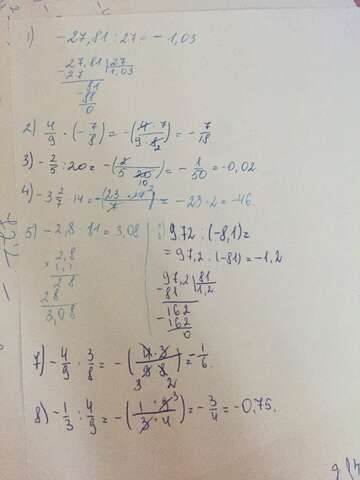 1) -27,81 : 27 = - 1,03
27,81 | 27
- 27 1,03
81
- 81
0
2) 4/9 · (- 7/8) = - (4 · 7 / 9 · 8 2) = - 7/18
3) - 2/5 : 20 = - (2 / 5 · 20 10) = - 1/50 = -0,02
4) -3 2/7 · 14 = - (23 · 14 2 / 7) = - 23 · 2 = -46.
5) -2,8 · 11 = 3,08
2,8
× 1,1
28
28
3,08
9,72 : (-8,1) =
= 97,2 : (-81) = -1,2
97,2 | 81
- 81 1,2
162
- 162
0
7) - 4/9 · 3/8 = - (4 · 3 / 9 · 8) = - 1/6
3 2
8) - 1/3 : 4/9 = - (1 · 9 3 / 3 · 4) = - 3/4 = -0,75.